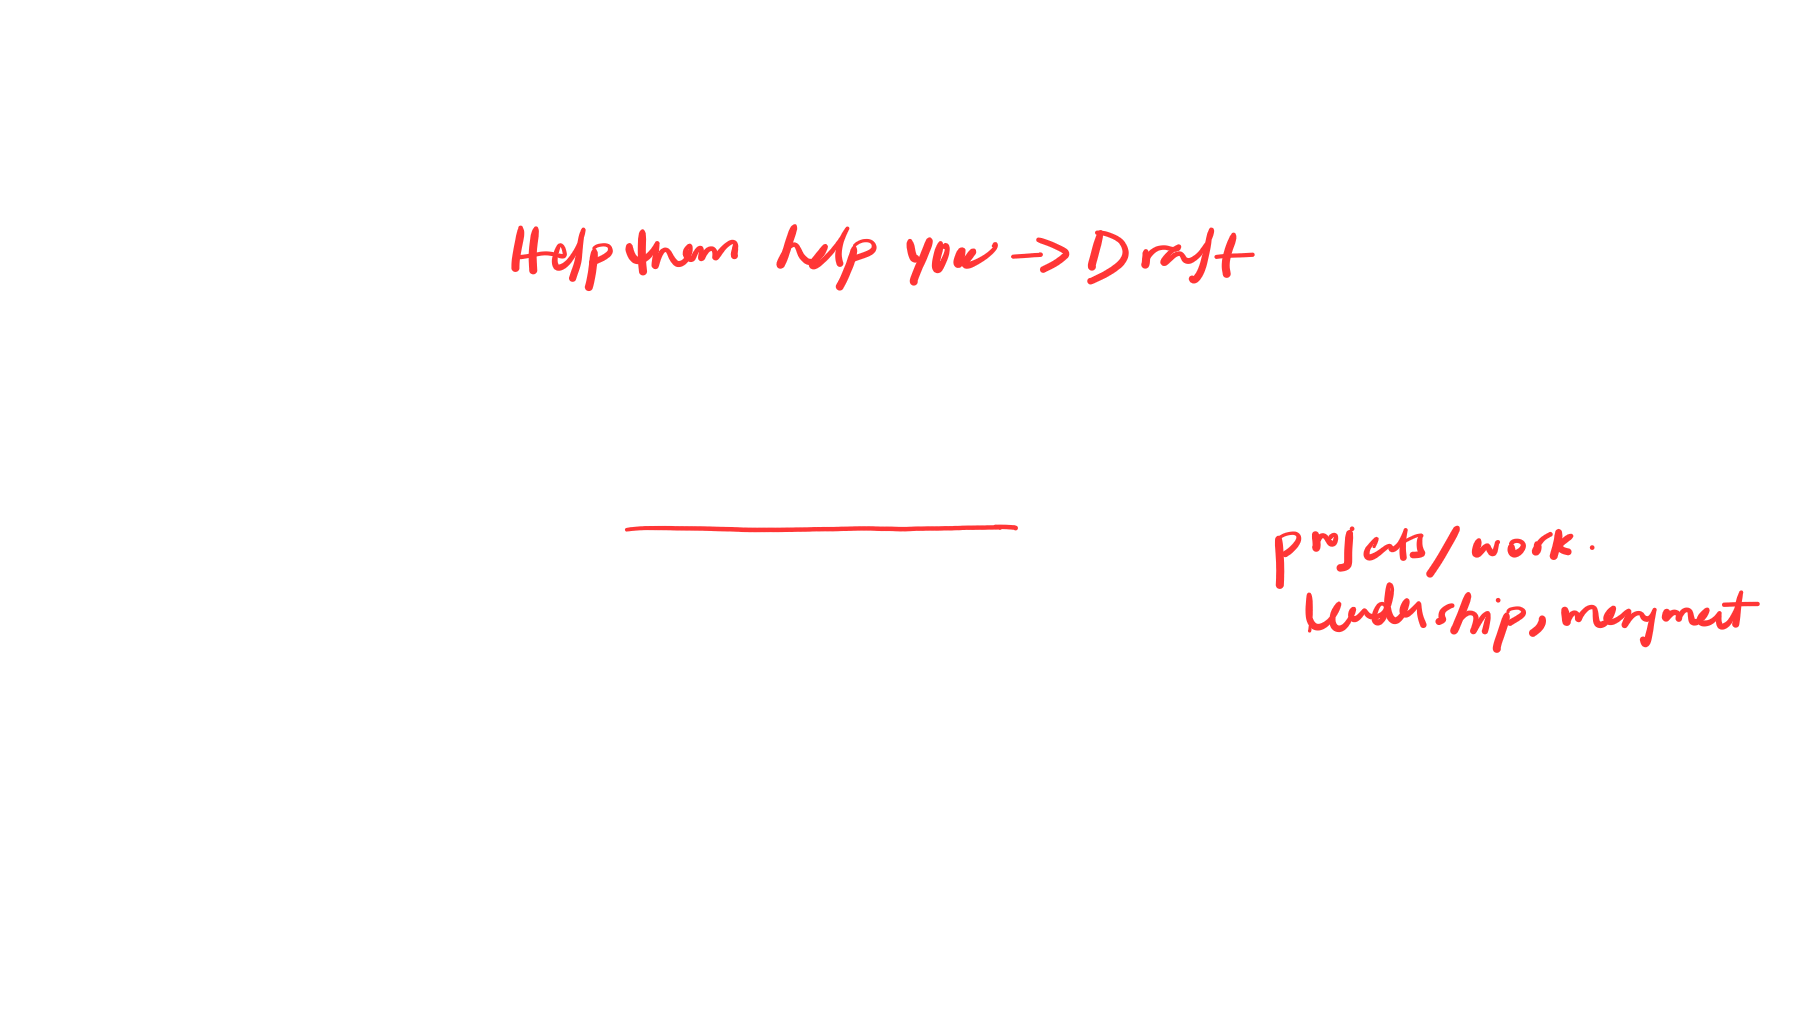 Help them help you → Draft
projects/work.
leadership, management